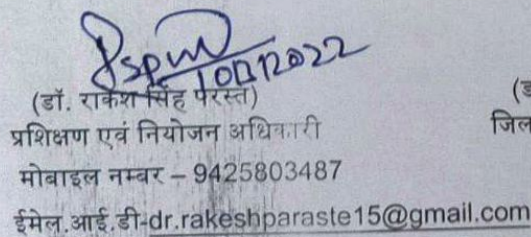 10/12/2022
(डॉ. राकेश सिंह परस्ते)
प्रशिक्षण एवं नियोजन अधिकारी
मोबाइल नम्बर – 9425803487
ईमेल.आई.डी-dr.rakeshparaste15@gmail.com
(ड
जिल